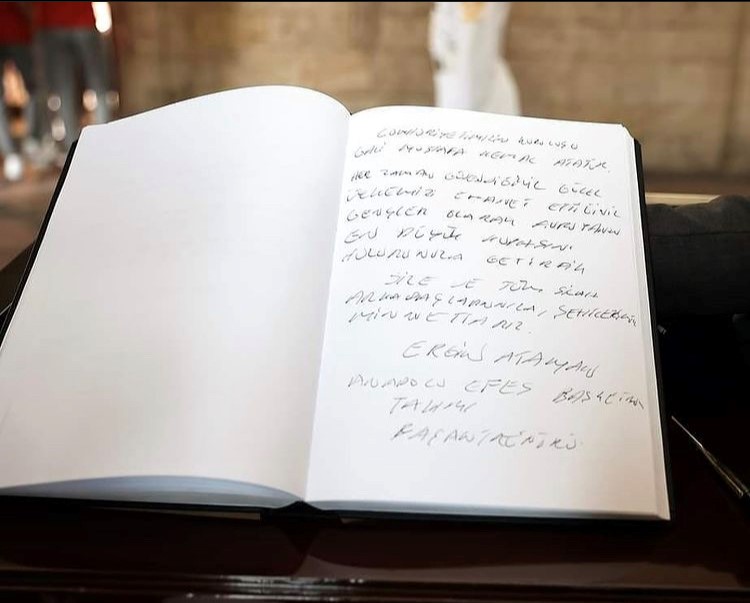 CUMHURİYETİMİZİN KURUCUSU
GAZİ MUSTAFA KEMAL ATATÜRK
HER ZAMAN GÜVENDİĞİNİZ GÜZEL
ÜLKEMİZİ EMANET ETTİĞİNİZ
GENÇLER OLARAK AVRUPANIN
EN BÜYÜK KUPASINI
HUZURUNUZA GETİRDİK
SİZE VE TÜM SİLAH
ARKADAŞLARINIZA, ŞEHİTLERİMİZE
MİNNETTARIZ.
ERGİN ATAMAN
ANADOLU EFES BASKETBOL
TAKIMI